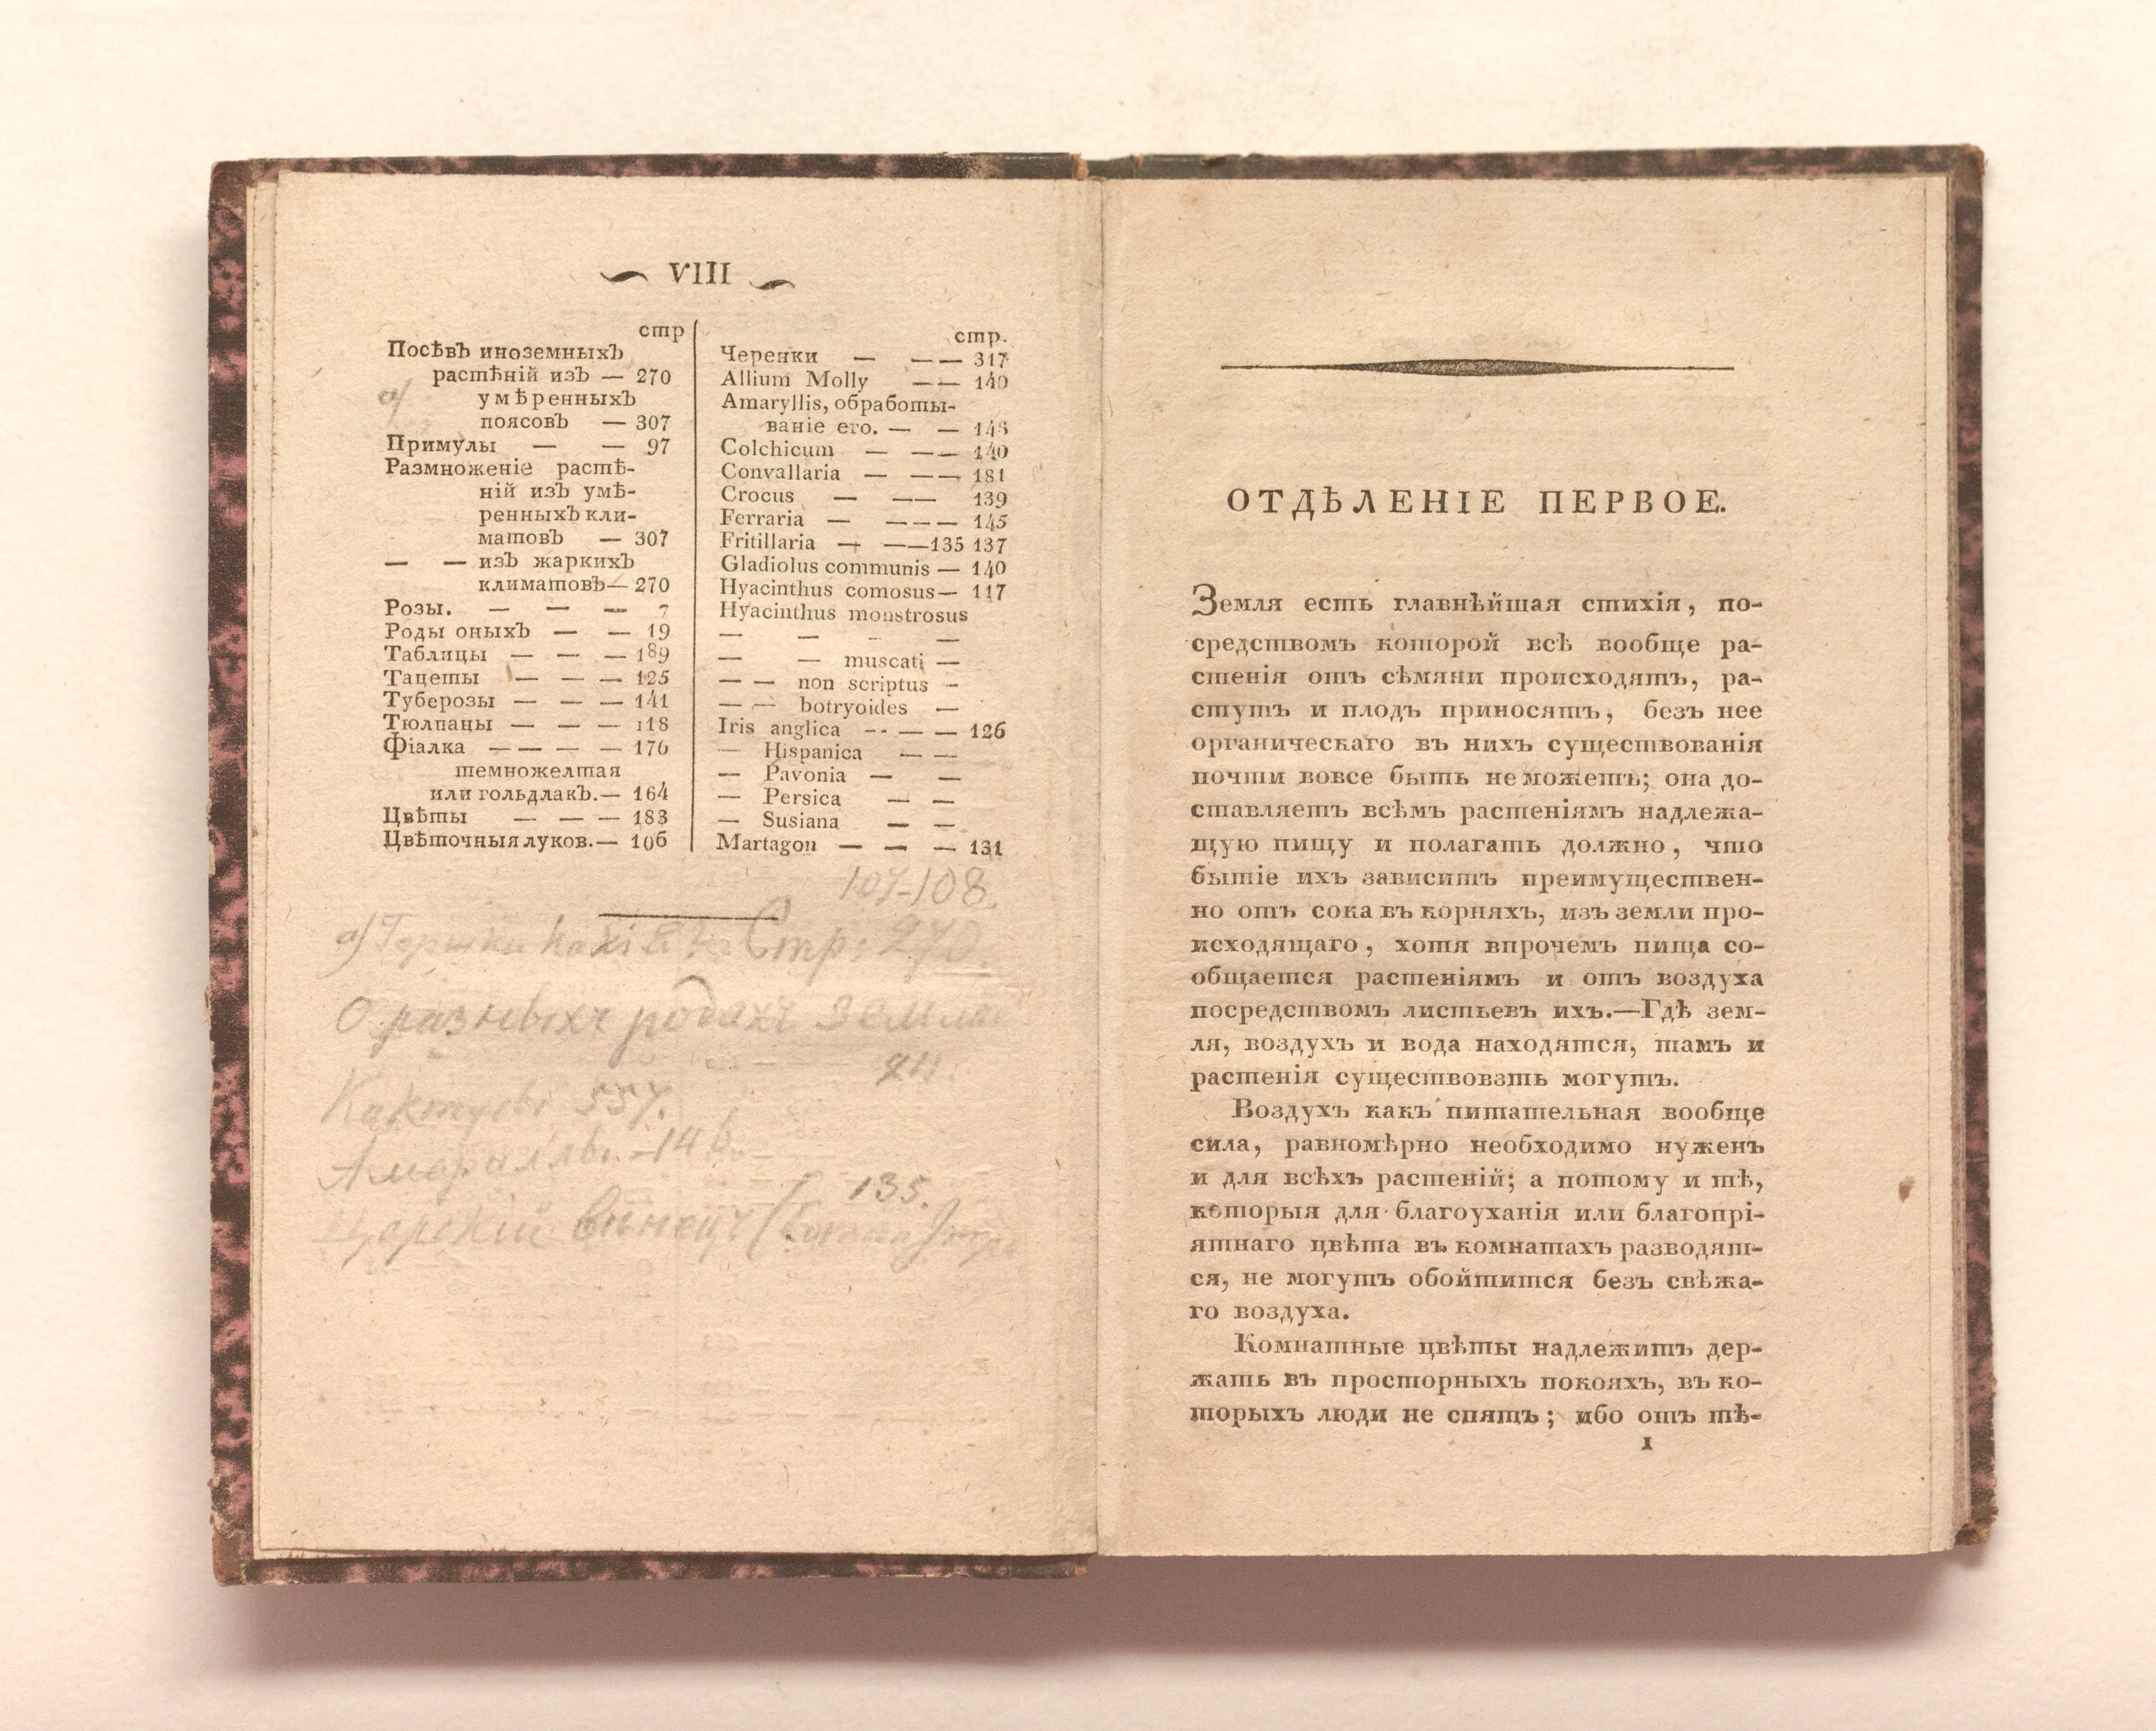 VIII
стр
Посѣвъ иноземныхъ
растѣній изъ — 270
а)
умѣренныхъ
поясовъ — 307
Примулы — — 97
Размноженіе растѣ-
ній изъ умѣ-
ренныхъ кли-
матовъ — 307
— — изъ жаркихъ
климатовъ — 270
Розы. — — — 7
Роды оныхъ — — 19
Таблицы — — — 189
Тацеты — — — 125
Туберозы — — — 141
Тюлпаны — — — 118
Фіалка — — — — 176
темножелтая
или гольдлакъ. — 164
Цвѣты — — — 183
Цвѣточныя луков. — 106
стр.
Черенки — — — 317
Allium Molly — — 140
Amaryllis, обработы-
ваніе его. — — 146
Colchicum — — — 140
Convallaria — — — 181
Crocus — — — 139
Ferraria — — — — 145
Fritillaria — — — 135 137
Gladiolus communis — 140
Hyacinthus comosus — 117
Hyacinthus monstrosus
— — — —
— — muscati —
— — non scriptus —
— — botryoides —
Iris anglica — — — 126
— Hispanica — —
— Pavonia — —
— Persica — —
— Susiana — —
Martagon — — — 131
107-108.
а) Горшки Стр: 270.
О разныхъ родахъ земли
Кактусы 557.
Амариллы. — 146.
135.
Царскій вѣнецъ
ОТДѢЛЕНІЕ ПЕРВОЕ.
Земля есть главнѣйшая стихія, по-
средствомъ которой всѣ вообще ра-
стенія отъ сѣмяни происходятъ, ра-
стутъ и плодъ приносятъ, безъ нее
органическаго въ нихъ существованія
почти вовсе быть не можетъ; она до-
ставляетъ всѣмъ растеніямъ надлежа-
щую пищу и полагать должно, что
бытіе ихъ зависитъ преимуществен-
но отъ сока въ корняхъ, изъ земли про-
исходящаго, хотя впрочемъ пища со-
общается растеніямъ и отъ воздуха
посредствомъ листьевъ ихъ.—Гдѣ зем-
ля, воздухъ и вода находятся, тамъ и
растенія существовать могутъ.
Воздухъ какъ питательная вообще
сила, равномѣрно необходимо нуженъ
и для всѣхъ растеній; а потому и тѣ,
которыя для благоуханія или благопрі-
ятнаго цвѣта въ комнатахъ разводят-
ся, не могутъ обойтится безъ свѣжа-
го воздуха.
Комнатные цвѣты надлежитъ дер-
жать въ просторныхъ покояхъ, въ ко-
торыхъ люди не спятъ; ибо отъ тѣ-
1